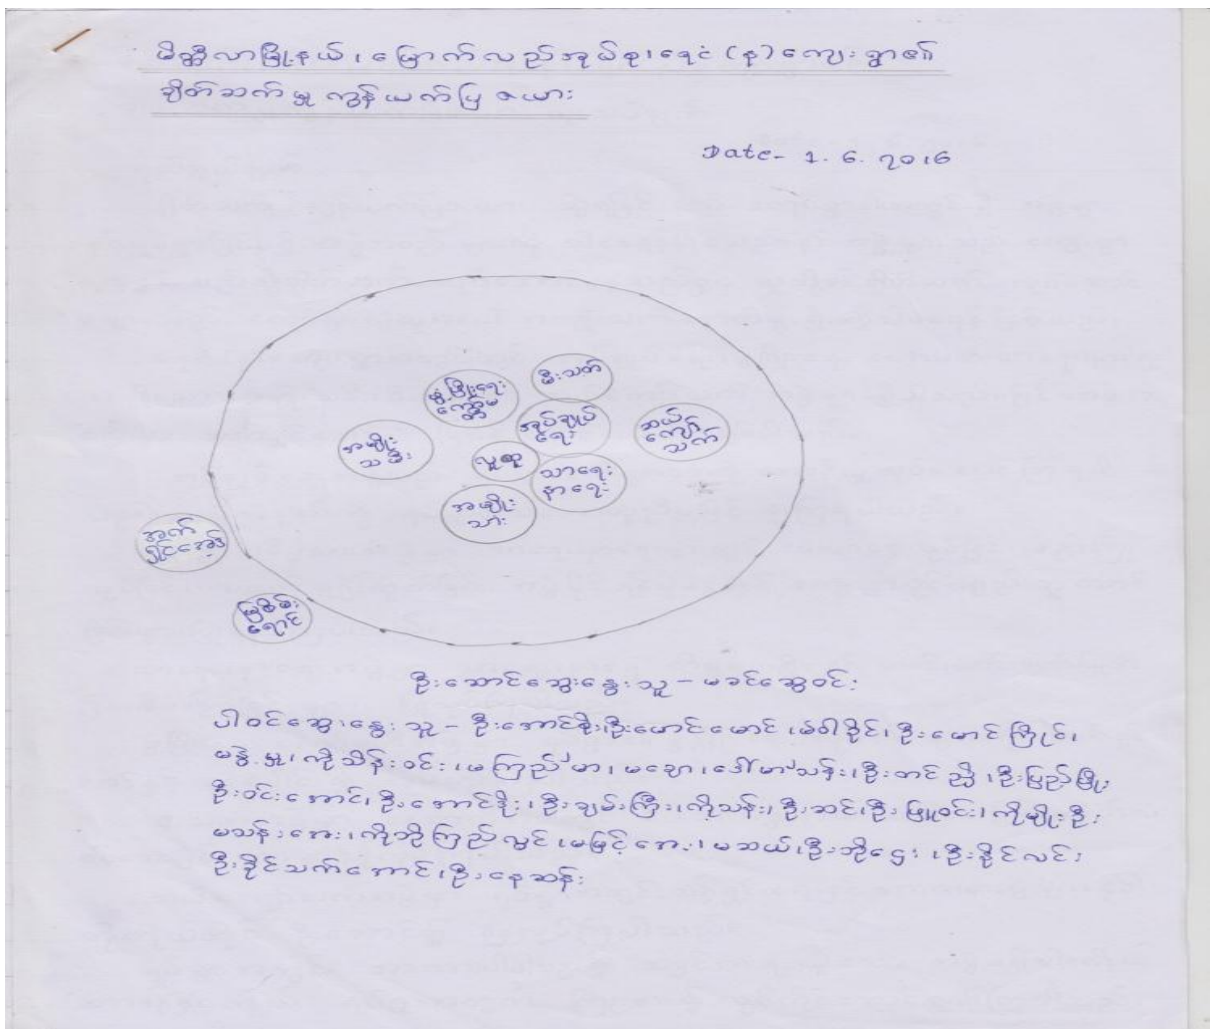 မိတ္ထီလာမြို့နယ်၊ မြောက်လည်အုပ်စု၊ရေငံ (န) ကျေးရွာ၏
ချိတ်ဆက်မှု ကွန်ယက်ပြ ဇယား
Date- 1. 6. 2016
မီးသတ်
ဖွံ့ဖြိုးရေး
ကော်မ
အုပ်ချုပ်
ရေး
ဆယ်
ကျော်
သက်
အမျိုး
သမီး
လူထု
သာရေး
နာရေး
အမျိုး
သား
အက်
ရှင်အေဒ်
မြစိမ်း
ရောင်
ဦးဆောင်ဆွေးနွေးသူ - မခင်ဆွေဝင်း
ပါဝင်ဆွေးနွေးသူ - ဦးအောင်စိုး၊ဦးမောင်မောင်၊ ဦးမောင်ကြိုင်၊
မနွဲ့မှု၊ ကိုသိန်းဝင်း၊မကြည်မာ၊ မချော၊ဒေါ်မာသန်း၊ဦးတင်ညို၊ဦးပြည်ဖြိုး
ဦးဝင်းအောင်၊ ဦးအောင်စိုး၊ဦးချမ်းကြီး၊ကိုသန်း၊ဦးဆင်၊ဦးဖြူဝင်း၊ကိုမျိုးဦး
မသန်းအေး၊ကိုဘိုကြည်လွင်၊မမြင့်အေး၊မဆယ်၊ဦးဘိုဌေး၊ဦးနိုင်လင်း
ဦးနိုင်သက်အောင်၊ဦးနေဆန်း